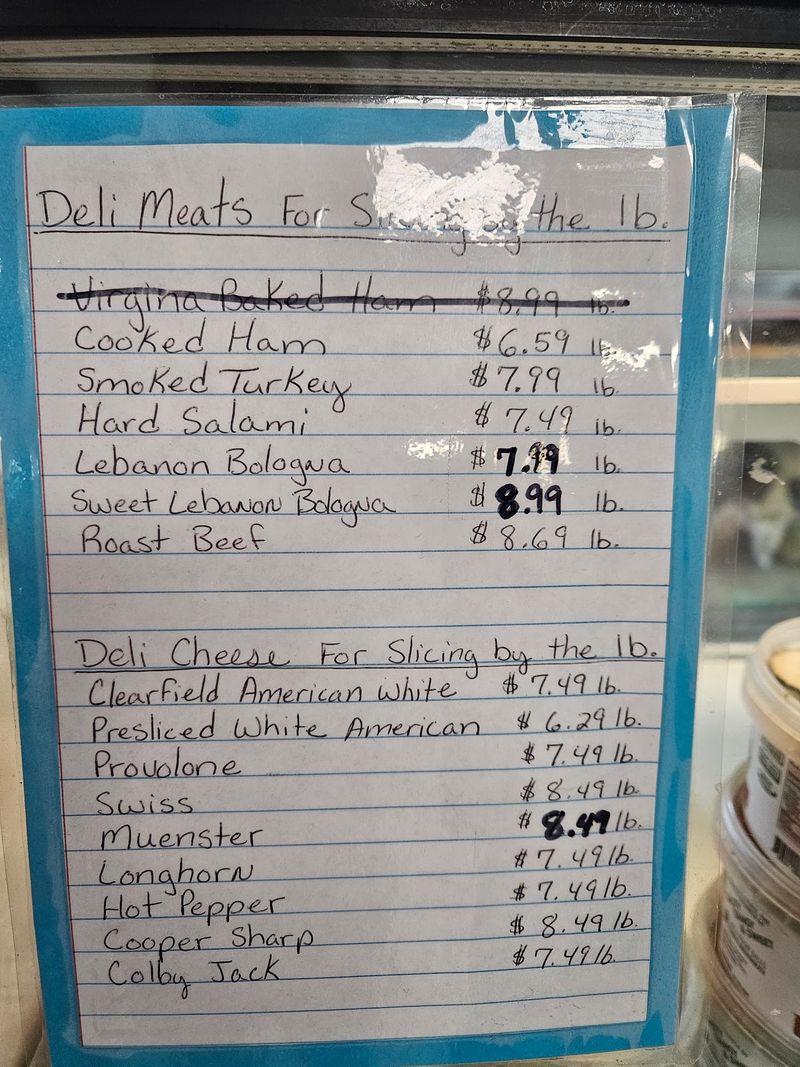 Deli Meats For Slicing by the lb.
Virgina Baked Ham $8.99 lb.
Cooked Ham $6.59 lb.
Smoked Turkey $7.99 lb.
Hard Salami $7.49 lb.
Lebanon Bologna $7.99 lb.
Sweet Lebanon Bologna $8.99 lb.
Roast Beef $8.69 lb.
Deli Cheese For Slicing by the lb.
Clearfield American white $7.49 lb.
Presliced White American $6.29 lb.
Provolone $7.49 lb.
Swiss $8.49 lb.
Muenster $8.49 lb.
Longhorn $7.49 lb.
Hot Pepper $7.49 lb.
Cooper Sharp $8.49 lb.
Colby Jack $7.49 lb.